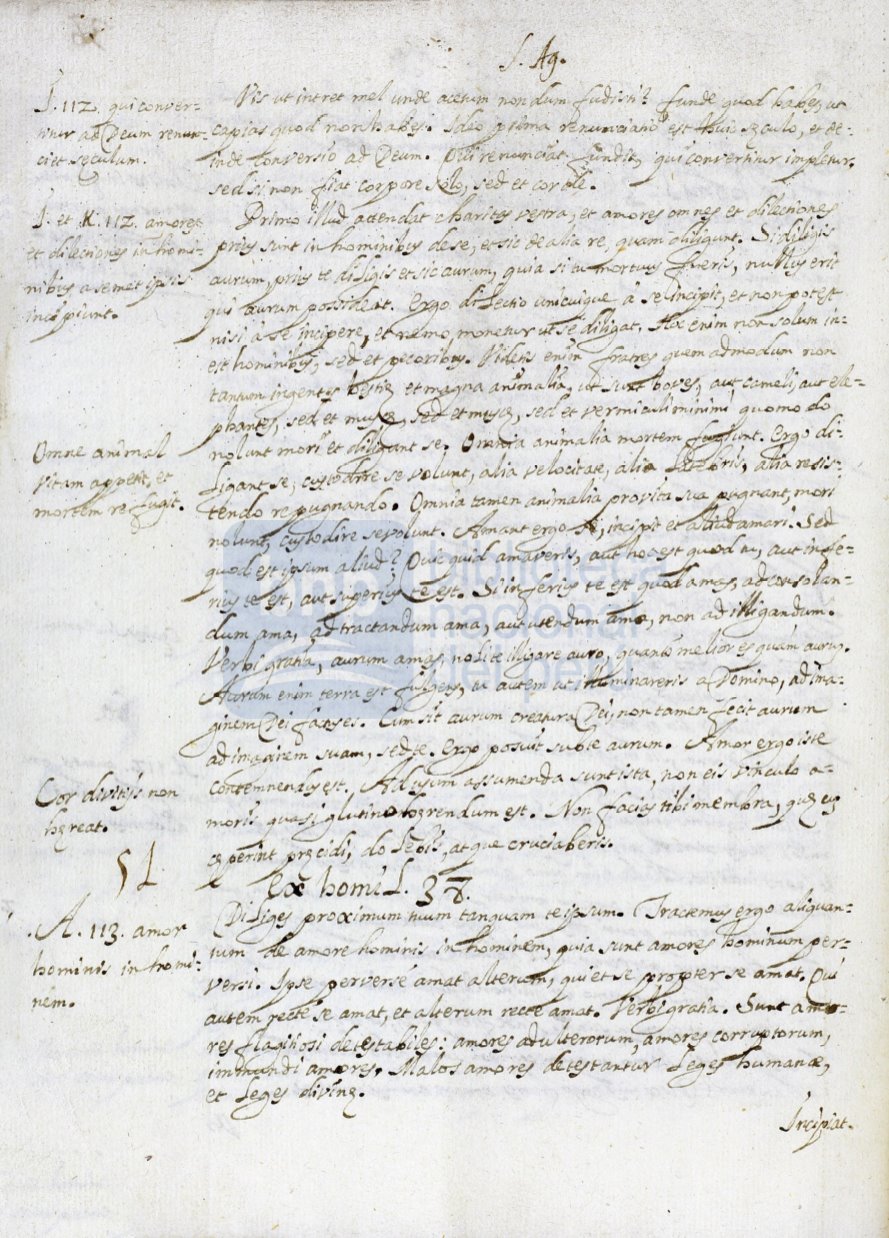 S. Ag.
J. 112. qui conver-
titur ad Deum renun-
ciet sęculum.
Vis ut intret mel unde acetum nondum fudisti? funde quod habes, ut
capias quod non habes. Ideo prima renunciatio est huic sęculo, et de-
inde conversio ad Deum. Qui renunciat fundit, qui convertitur impletur,
sed si non fiat corpore solo, sed et corde.
J. et K. 112. amores
et dilectiones in homi-
nibus a semet ipsis
incipiunt.
Primo illud attendat charitas vestra, et amores omnes et dilectiones
prius sunt in hominibus de se, et sic de alia re, quam diligunt. Si diligis
aurum, prius te diligis et sic aurum, quia si tu mortuus fueris, nullus erit
qui aurum possideat. Ergo dilectio unicuique à se incipit, et non potest
nisi à se incipere, et nemo monetur ut se diligat. Hoc enim non solum in-
est hominibus, sed et pecoribus. Videtis enim fratres quem admodum non
tantum ingentes bestię et magna animalia, ut sunt boves, aut cameli, aut ele-
phantes, sed et muscę, sed et vermiculi minimi, quomodo
nolunt mori et diligunt se. Omnia animalia mortem fugiunt. Ergo di-
ligant se, custodire se volunt, alia velocitate, alia latebris, alia resis-
tendo repugnando. Omnia tamen animalia pro vita sua pugnant, mori
nolunt, custodire se volunt. Amant ergo se, incipit et aliud amari. Sed
quod est ipsum aliud? Quicquid amaveris, aut hoc est quod tu, aut infe-
rius te est, aut superius te est. Si inferius te est quod amas, ad consolan-
dum ama, ad tractandum ama, ad utendum ama, non ad illigandum.
Omne animal
vitam appetit, et
mortem refugit.
Verbi gratia, aurum amas, noli te illigare auro, quantò melior es quam aurum.
Aurum enim terra est fulgens, tu autem ut illuminareris a Domino, ad ima-
ginem Dei factus es. Cum sit aurum creatura Dei, non tamen fecit aurum
ad imaginem suam, sed te. Ergo posuit sub te aurum. Amor ergo iste
contemnendus est. Ad usum assumenda sunt ista, non eis vinculo a-
moris quasi glutino hęrendum est. Non facies tibi membra, quę cum
cęperint pręcidi, dolebis, atque cruciaberis.
Cor divitijs non
hęreat.
51.
Ex homil. 38.
A. 113. amor
hominis in homi-
nem.
Diliges proximum tuum tanquam te ipsum. Tractemus ergo aliquan-
tum de amore hominis in hominem, quia sunt amores hominum per-
versi. Ipse perversè amat alterum, qui et se propter se amat. Qui
autem rectè se amat, et alterum recte amat. Verbi gratia. Sunt amo-
res flagitiosi detestabiles: amores adulterorum, amores corruptorum,
immundi amores. Malos amores detestantur leges humanæ,
et leges divinę.
Incipiat.
biblioteca
nacional
del perú